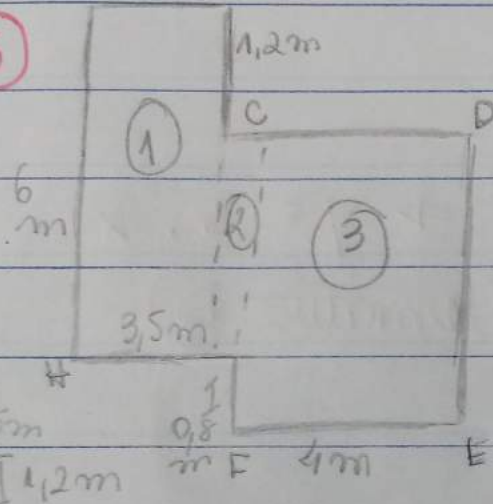 1,2m
C D
1
6
m
2
3
3,5m
H
I
0,8
m F 4m E
m
I 1,2m